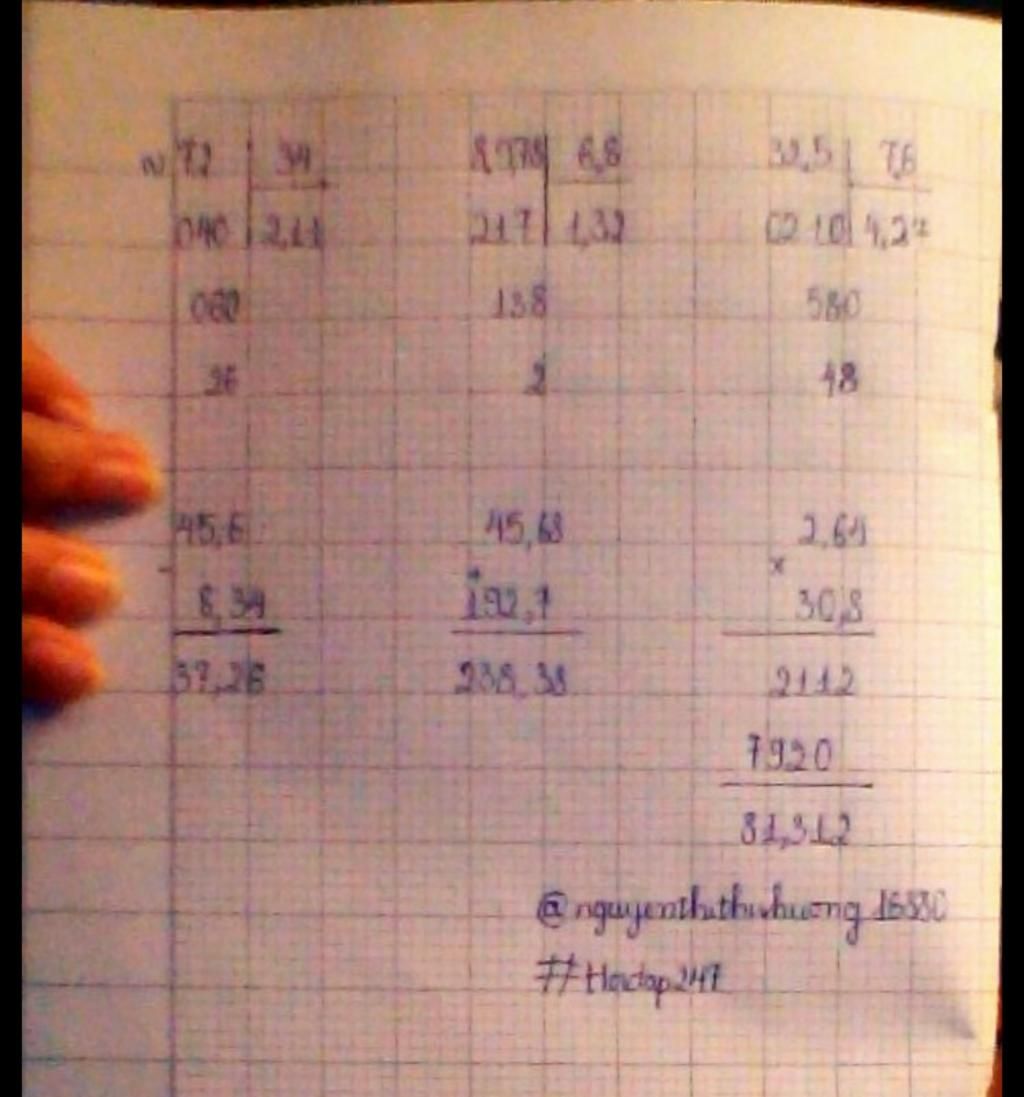 72 34 8,978 6,8 32,5 7,6
040 2,11 217 1,32 0210 4,27
060 138 580
26 2 48
45,6 45,68 2,64
- + x
8,34 192,7 30,8
37,26 238,38 2112
7920
81,312
@nguyenthithuhuong
#Hoidap247